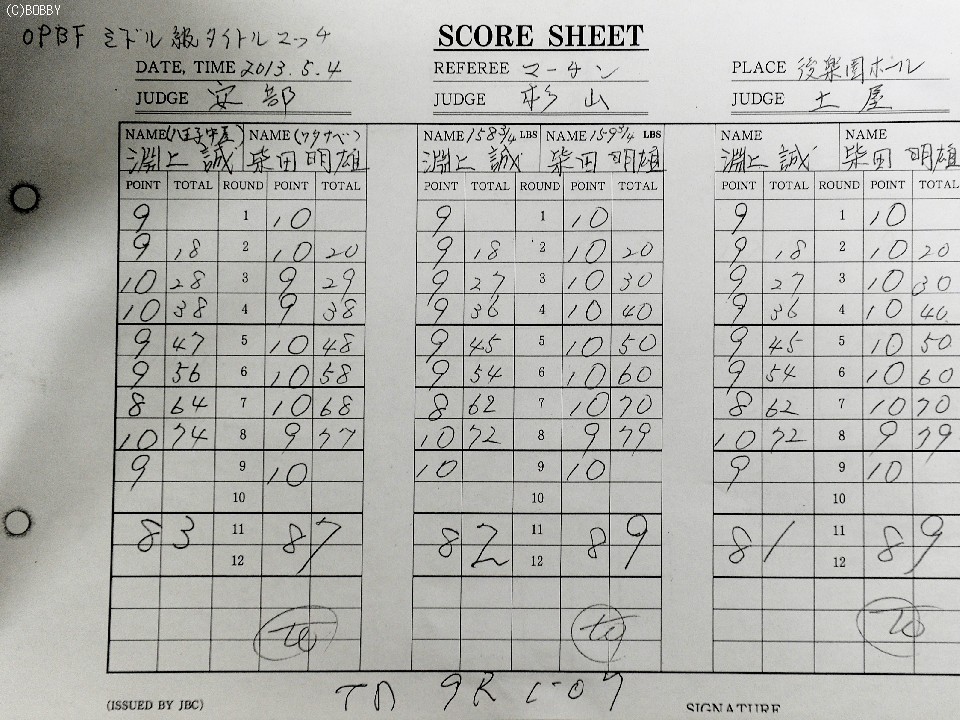 (C)BOBBY
OPBF ミドル級タイトルマッチ
SCORE SHEET
DATE, TIME 2013.5.4 REFEREE マーチン PLACE 後楽園ホール
JUDGE 安部 JUDGE 杉山 JUDGE 土屋
NAME (八王子中屋) NAME (ワタナベ) NAME 158 3/4 LBS NAME 159 3/4 LBS NAME NAME
淵上 誠 柴田 明雄 淵上 誠 柴田 明雄 淵上 誠 柴田 明雄
POINT TOTAL ROUND POINT TOTAL POINT TOTAL ROUND POINT TOTAL POINT TOTAL ROUND POINT TOTAL
9 1 10 9 1 10 9 1 10
9 18 2 10 20 9 18 2 10 20 9 18 2 10 20
10 28 3 9 29 9 27 3 10 30 9 27 3 10 30
10 38 4 9 38 9 36 4 10 40 9 36 4 10 40
9 47 5 10 48 9 45 5 10 50 9 45 5 10 50
9 56 6 10 58 9 54 6 10 60 9 54 6 10 60
8 64 7 10 68 8 62 7 10 70 8 62 7 10 70
10 74 8 9 77 10 72 8 9 79 10 72 8 9 79
9 9 10 10 9 10 9 9 10
10 10 10
83 11 87 82 11 89 81 11 89
12 12 12
TD 9R 1-09
(ISSUED BY JBC) SIGNATURE